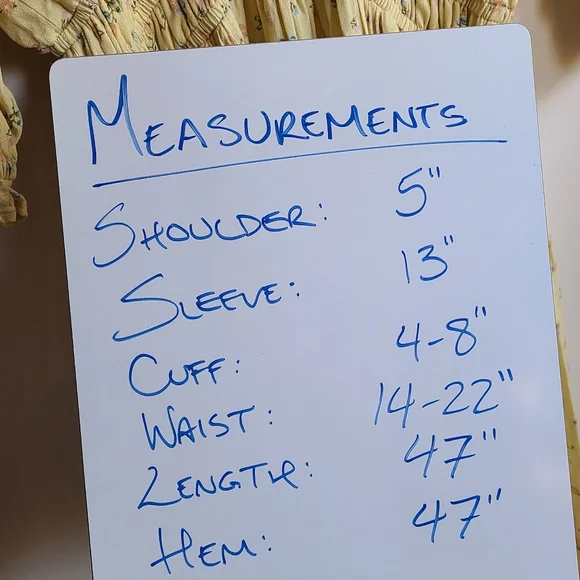 MEASUREMENTS
SHOULDER: 5"
SLEEVE: 13"
CUFF: 4-8"
WAIST: 14-22"
LENGTH: 47"
HEM: 47"